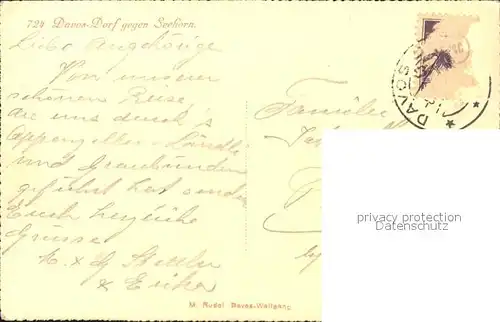 724 Davos-Dorf gegen Seehorn.
Liebe Angehörige
Von unserer
schönen Reise,
die uns durch's
Appenzeller-Ländli
und Graubünden
geführt hat senden
Euch herzliche
Grüsse
&
Familie
DAVOS
privacy protection
Datenschutz
M. Rudel Davos-Wolfgang